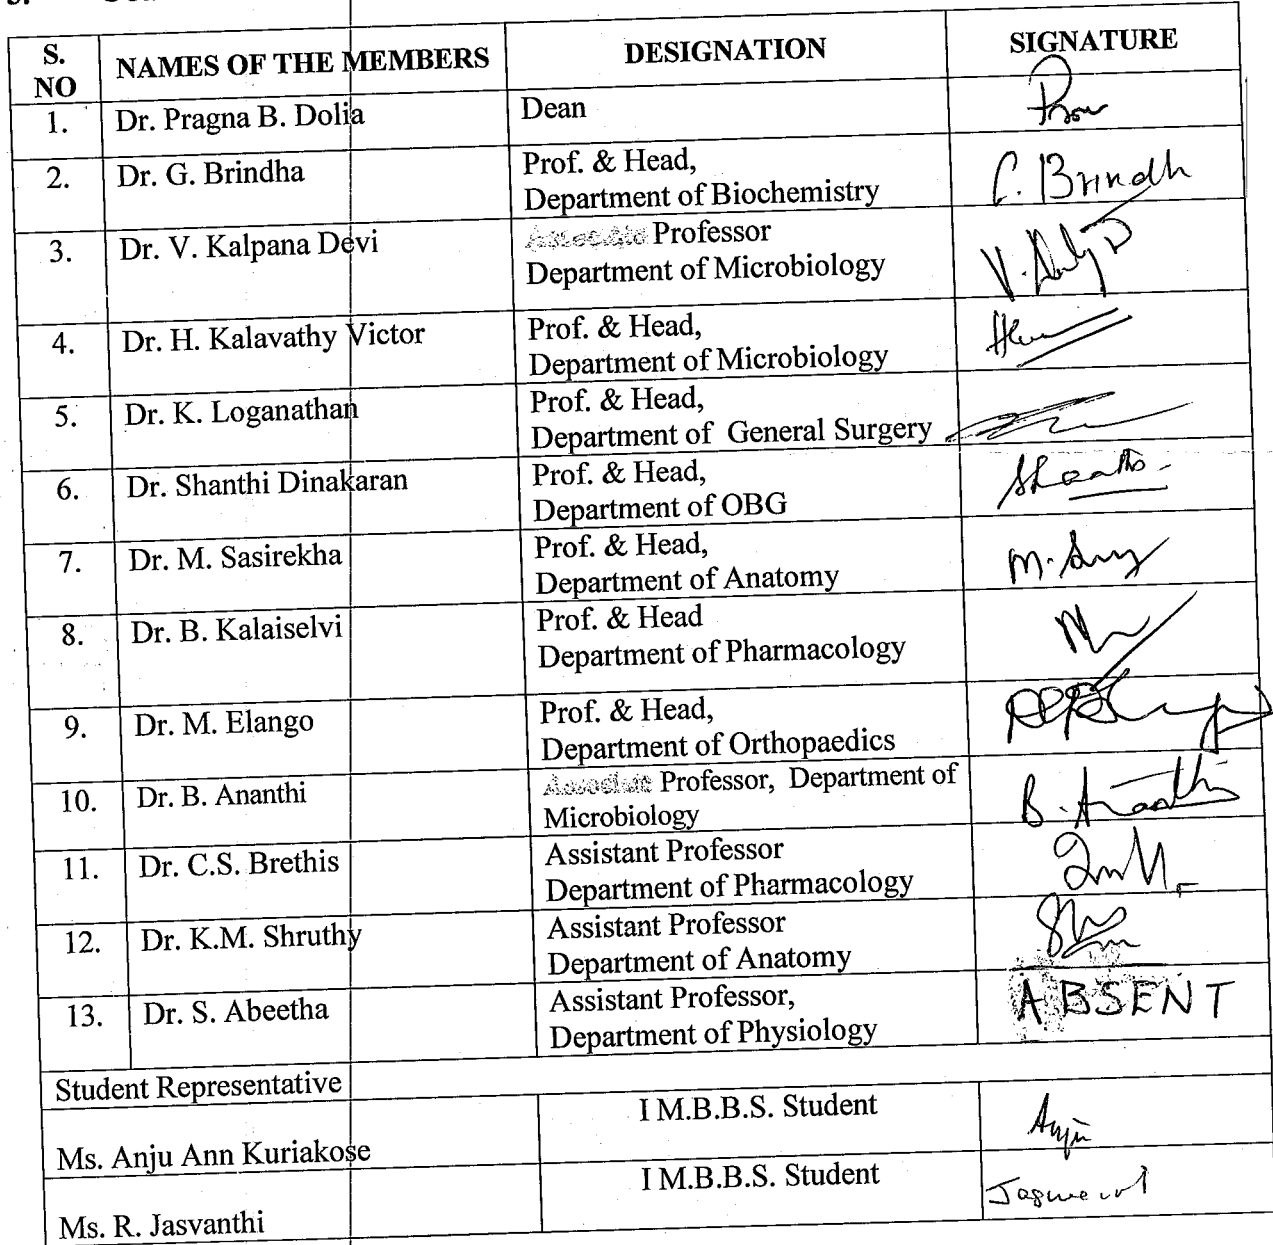 S. NO NAMES OF THE MEMBERS DESIGNATION SIGNATURE
1. Dr. Pragna B. Dolia Dean
2. Dr. G. Brindha Prof. & Head,
Department of Biochemistry
3. Dr. V. Kalpana Devi Associate Professor
Department of Microbiology
4. Dr. H. Kalavathy Victor Prof. & Head,
Department of Microbiology
5. Dr. K. Loganathan Prof. & Head,
Department of General Surgery
6. Dr. Shanthi Dinakaran Prof. & Head,
Department of OBG
7. Dr. M. Sasirekha Prof. & Head,
Department of Anatomy
8. Dr. B. Kalaiselvi Prof. & Head
Department of Pharmacology
9. Dr. M. Elango Prof. & Head,
Department of Orthopaedics
10. Dr. B. Ananthi Associate Professor, Department of
Microbiology B. Ananthi
11. Dr. C.S. Brethis Assistant Professor
Department of Pharmacology
12. Dr. K.M. Shruthy Assistant Professor
Department of Anatomy
13. Dr. S. Abeetha Assistant Professor, ABSENT
Department of Physiology
Student Representative
I M.B.B.S. Student
Ms. Anju Ann Kuriakose Anju
I M.B.B.S. Student
Ms. R. Jasvanthi